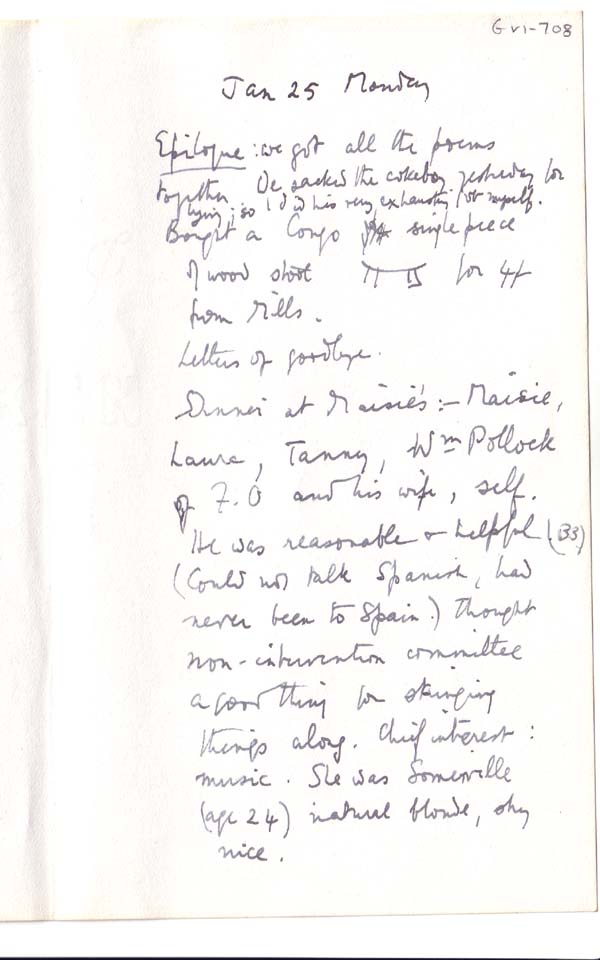 G VI-708
Jan 25 Monday
Epilogue: we got all the poems
together. We sacked the cokeboy yesterday for
lying; so I did his very exhausting job myself.
Bought a Congo single piece
of wood stool for 4/-
from Mills.
Letters of goodbye.
Dinner at Maisie's:- Maisie,
Laura, Tanny, Wm Pollock
of F.O and his wife, self.
He was reasonable & helpful (33)
(Could not talk Spanish, had
never been to Spain.) Thought
non-intervention committee
a good thing for stringing
things along. Chief interest:
music. She was Somerville
(age 24) natural blonde, shy
nice.